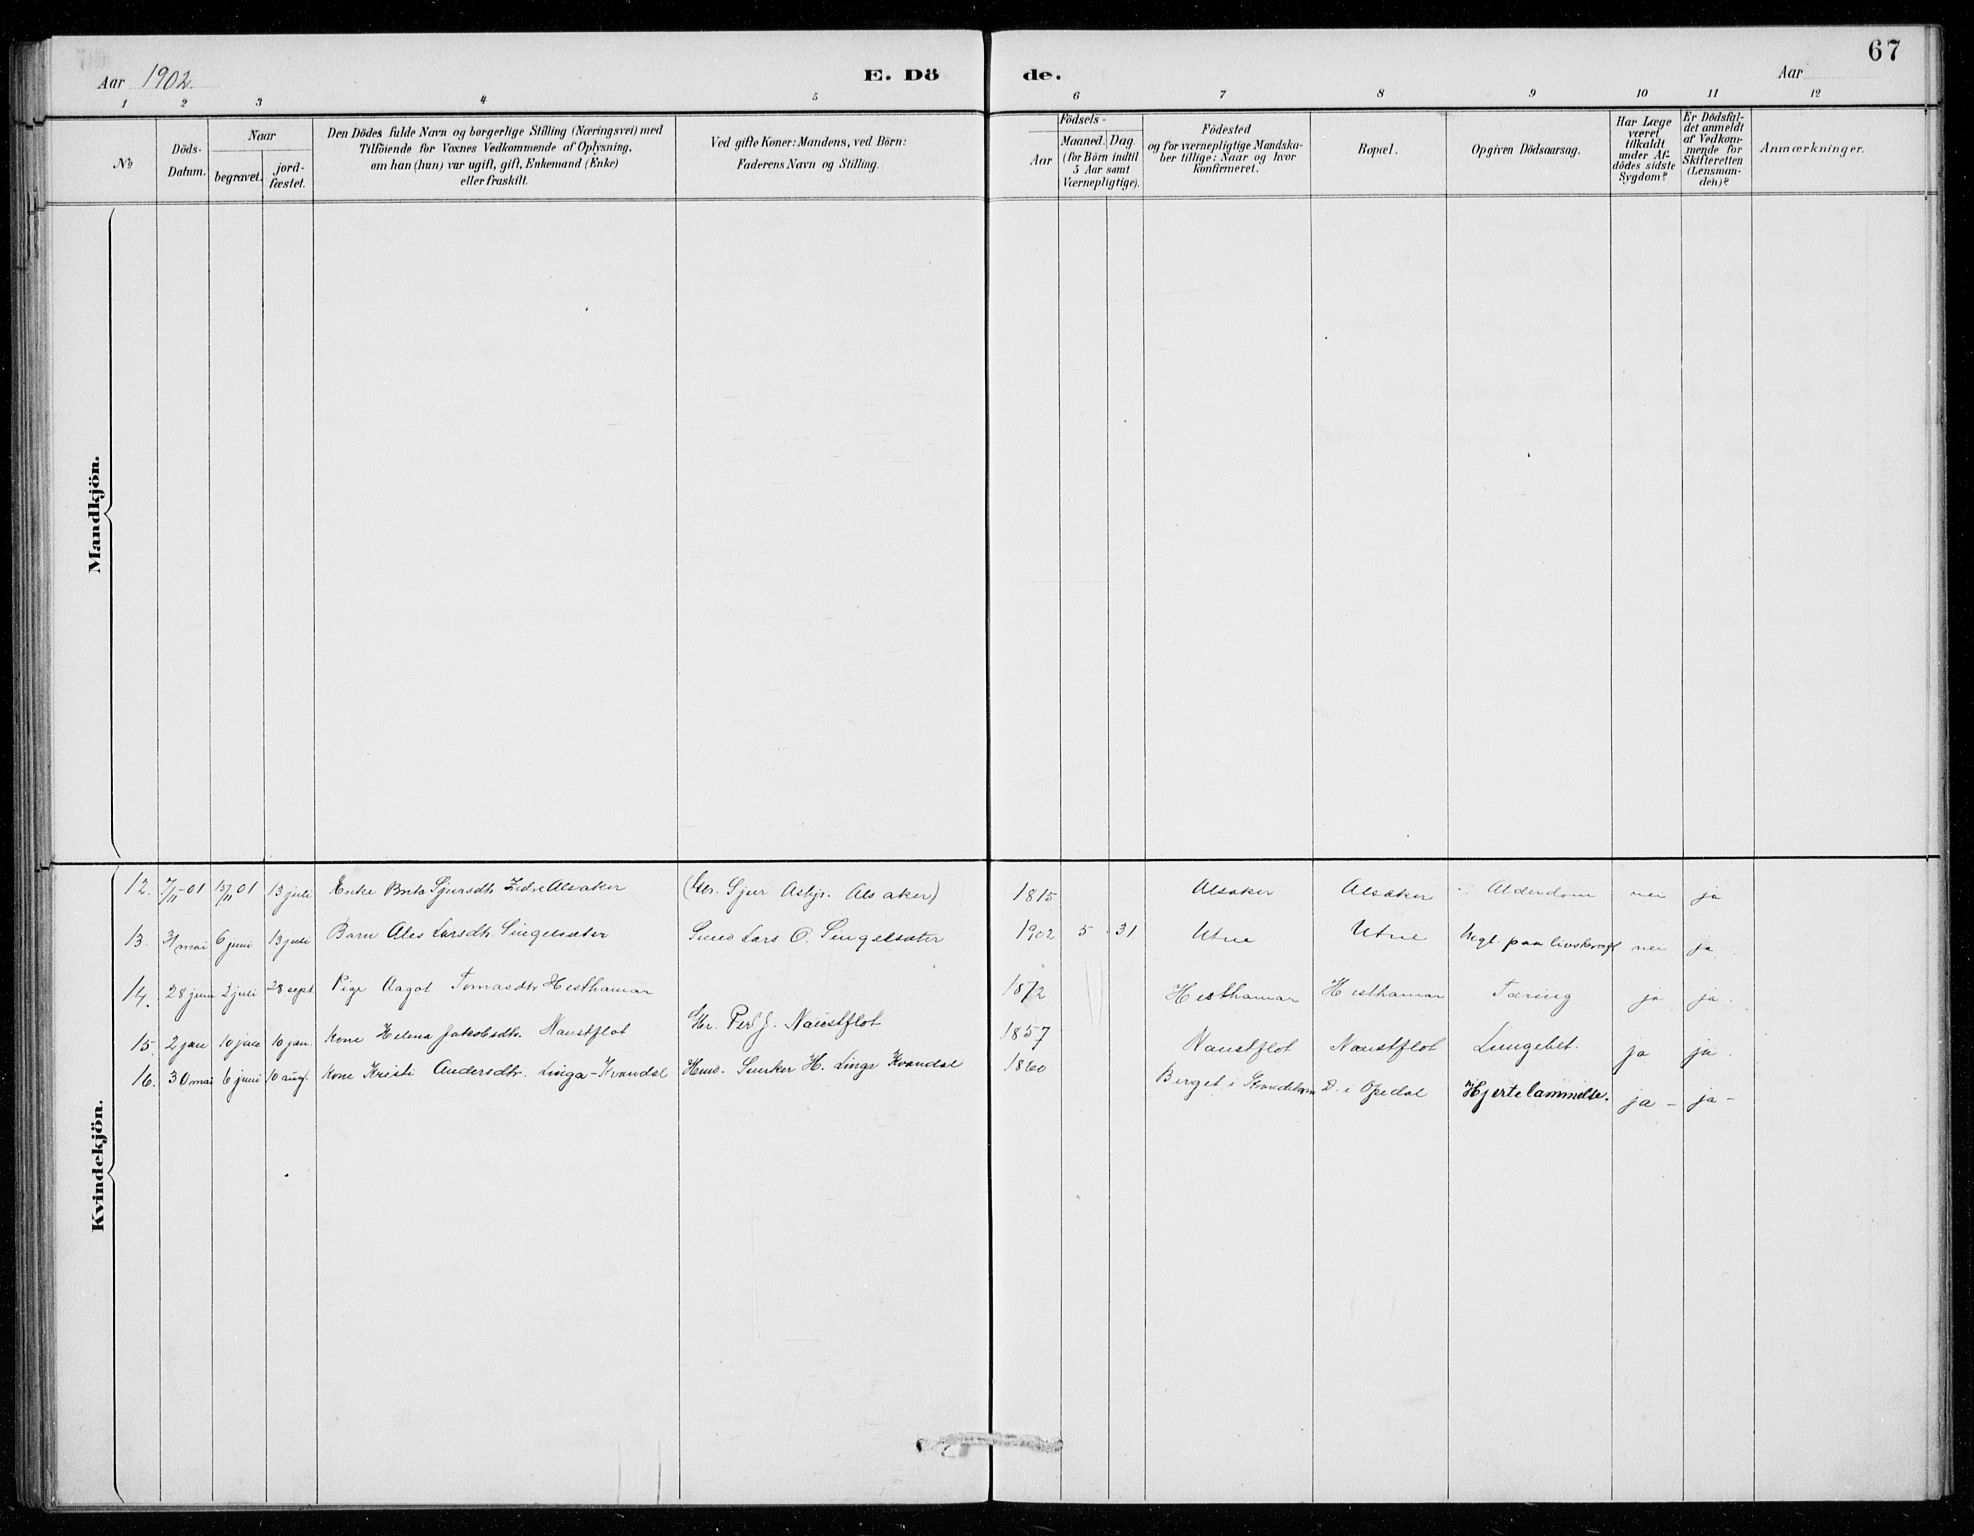 67
Aar 1902. E. Dö de. Aar
1 2 3 4 5 6 7 8 9 10 11 12
No
Döds-Datum.
Naar
begravet.
jord-fæstet.
Den Dödes fulde Navn og borgerlige Stilling (Næringsvei) med
Tilföiende for Voxnes Vedkommende af Oplysning,
om han (hun) var ugift, gift, Enkemand (Enke)
eller fraskilt.
Ved gifte Koner: Mandens, ved Börn:
Faderens Navn og Stilling.
Födsels-
Aar
Maaned. Dag
(for Börn indtil
5 Aar samt
Værnepligtige).
Födested
og for værnepligtige Mandska-
ber tillige: Naar og hvor
konfirmeret.
Bopæl.
Opgiven Dödsaarsag.
Har Læge
været
tilkaldt
under Af-
dödes sidste
Sygdom?
Er Dödsfal-
det anmeldt
af Vedkom-
mende for
Skifteretten
(Lensman-
den)?
Anmærkninger.
Mandkjön.
Kvindekjön.
12. 7/11-01 15/11 01 13 juli Enke Brita Sjursdtr. Alsaker (Gbr. Sjur Asbjr. Alsaker) 1815 Alsaker Alsaker Alderdom nei ja
13. 31/mai 6 juni 13 juli Barn Ales Larsdtr. Singelsæter Smed Lars O. Singelsæter 1902 5 31 Utne Utne Mgl. paa livskraft nei ja
14. 28 juni 2 juli 28 sept. Pige Aagot Tomasdtr Hesthamar 1872 Hesthamar Hesthamar Tæring ja ja.
15. 2 jan 10 jan 10 jan. Kone Helena Jakobsdtr. Naustflot Gbr. Per J. Naustflot 1857 Naustflot Naustflot Lungebet. ja ja.
16. 30 mai 6 juni 10 aug. Kone Kristi Andersdtr. Linga-Kvandal Hmd. H. Linga Kvandal 1860 Berget i D. i Opedal Hjertelammelse. ja - ja -